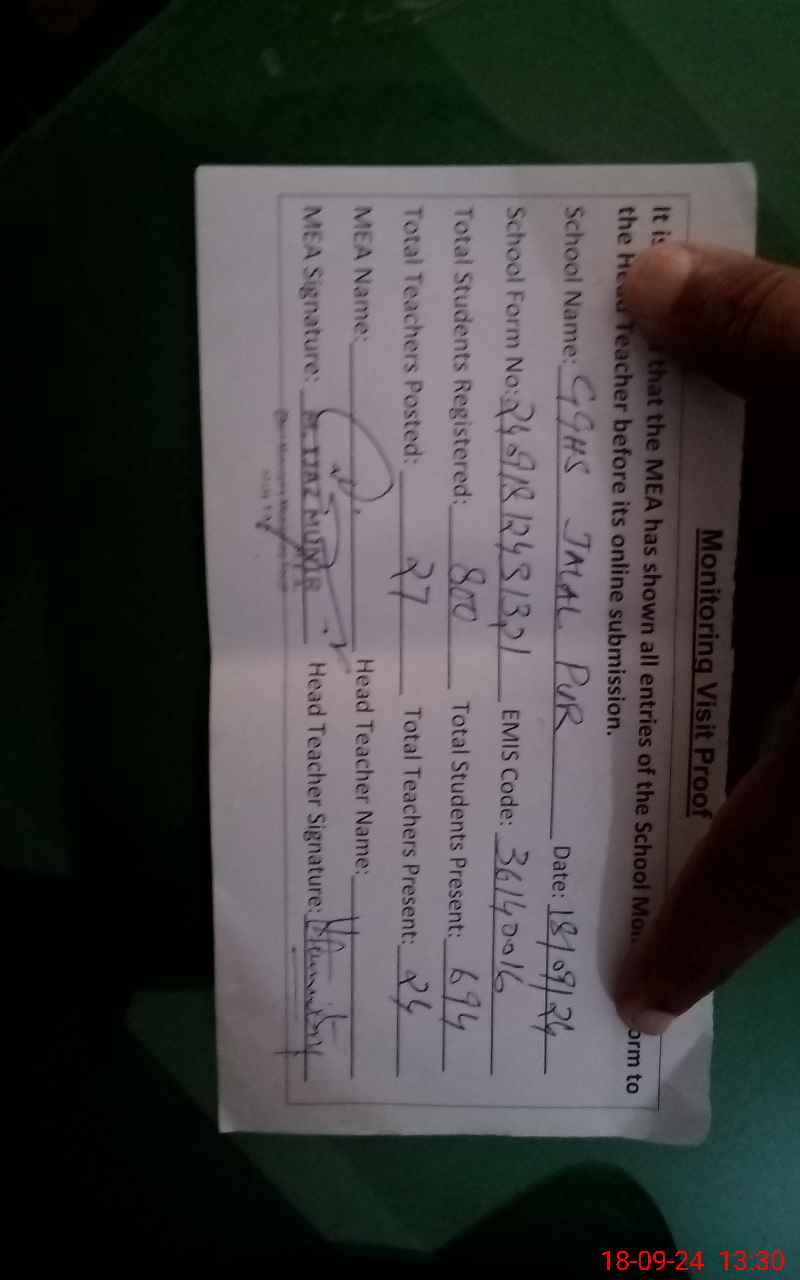 Monitoring Visit Proof
It is that the MEA has shown all entries of the School orm to
the Head Teacher before its online submission.
School Name: GGHS JALAL PUR Date: 18/09/24
School Form No: EMIS Code: 36140016
Total Students Registered: 800 Total Students Present: 694
Total Teachers Posted: 27 Total Teachers Present: 24
MEA Name: Head Teacher Name:
MEA Signature: M. IJAZ MUNIR Head Teacher Signature:
18-09-24 13:30